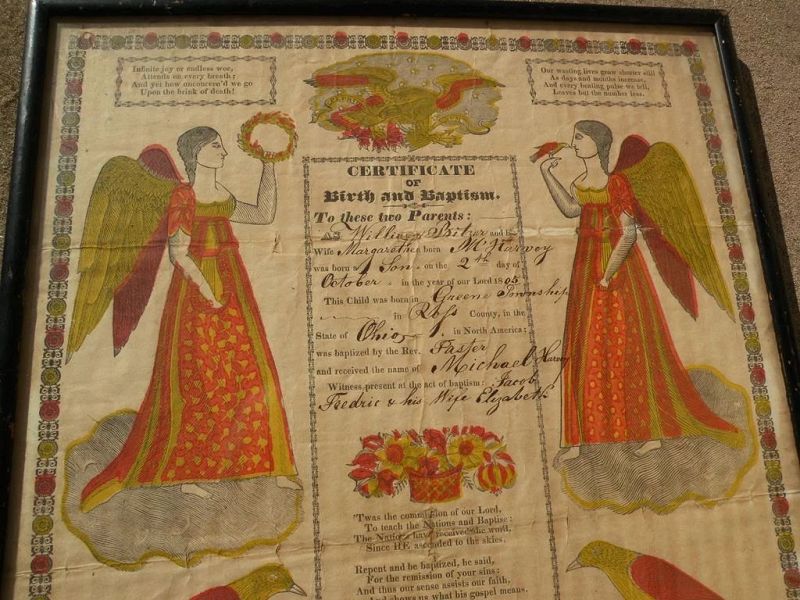 Infinite joy or endless woe,
Attends on every breath;
And yet how unconcern'd we go
Upon the brink of death!
Our wasting lives grow shorter still
As days and months increase,
And every beating pulse we tell,
Leaves but the number less.
CERTIFICATE
OF
Birth and Baptism.
To these two Parents:
As William and
Wife Margaretha born McHarvoy
was born A Son on the 2th day of
October in the year of our Lord 1805
This Child was born in Greene Township
in Ross County, in the
State of Ohio in North America;
was baptized by the Rev. Faster
and received the name of Michael Harvoy
Witness present at the act of baptism: Jacob
Fredric & his Wife Elizabeth
'Twas the commission of our Lord,
To teach the Nations and Baptise:
The Nations have received the word,
Since HE ascended to the skies.
Repent and be baptized, he said,
For the remission of your sins:
And thus our sense assists our faith,
And shows us what his gospel means.